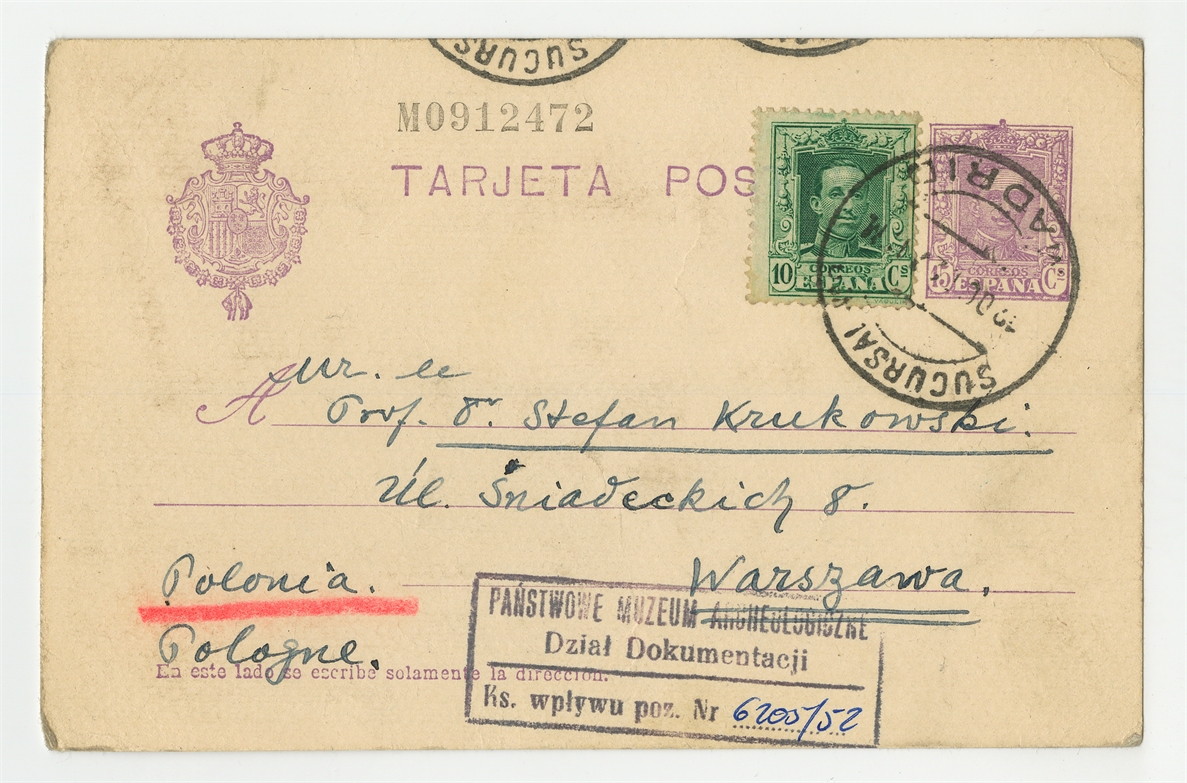 SUCURS
M0912472
TARJETA POS
10 CORREOS Cs
ESPAÑA
15 CORREOS Cs
ESPAÑA
MADRID
SUCURSAL
A
Prof. Dr. Stefan Krukowski.
Ul. Śniadeckich 8.
Warszawa.
Polonia.
Pologne.
En este lado se escribe solamente la dirección.
PAŃSTWOWE MUZEUM ARCHEOLOGICZNE
Dział Dokumentacji
Ks. wpływu poz. Nr 6205/52